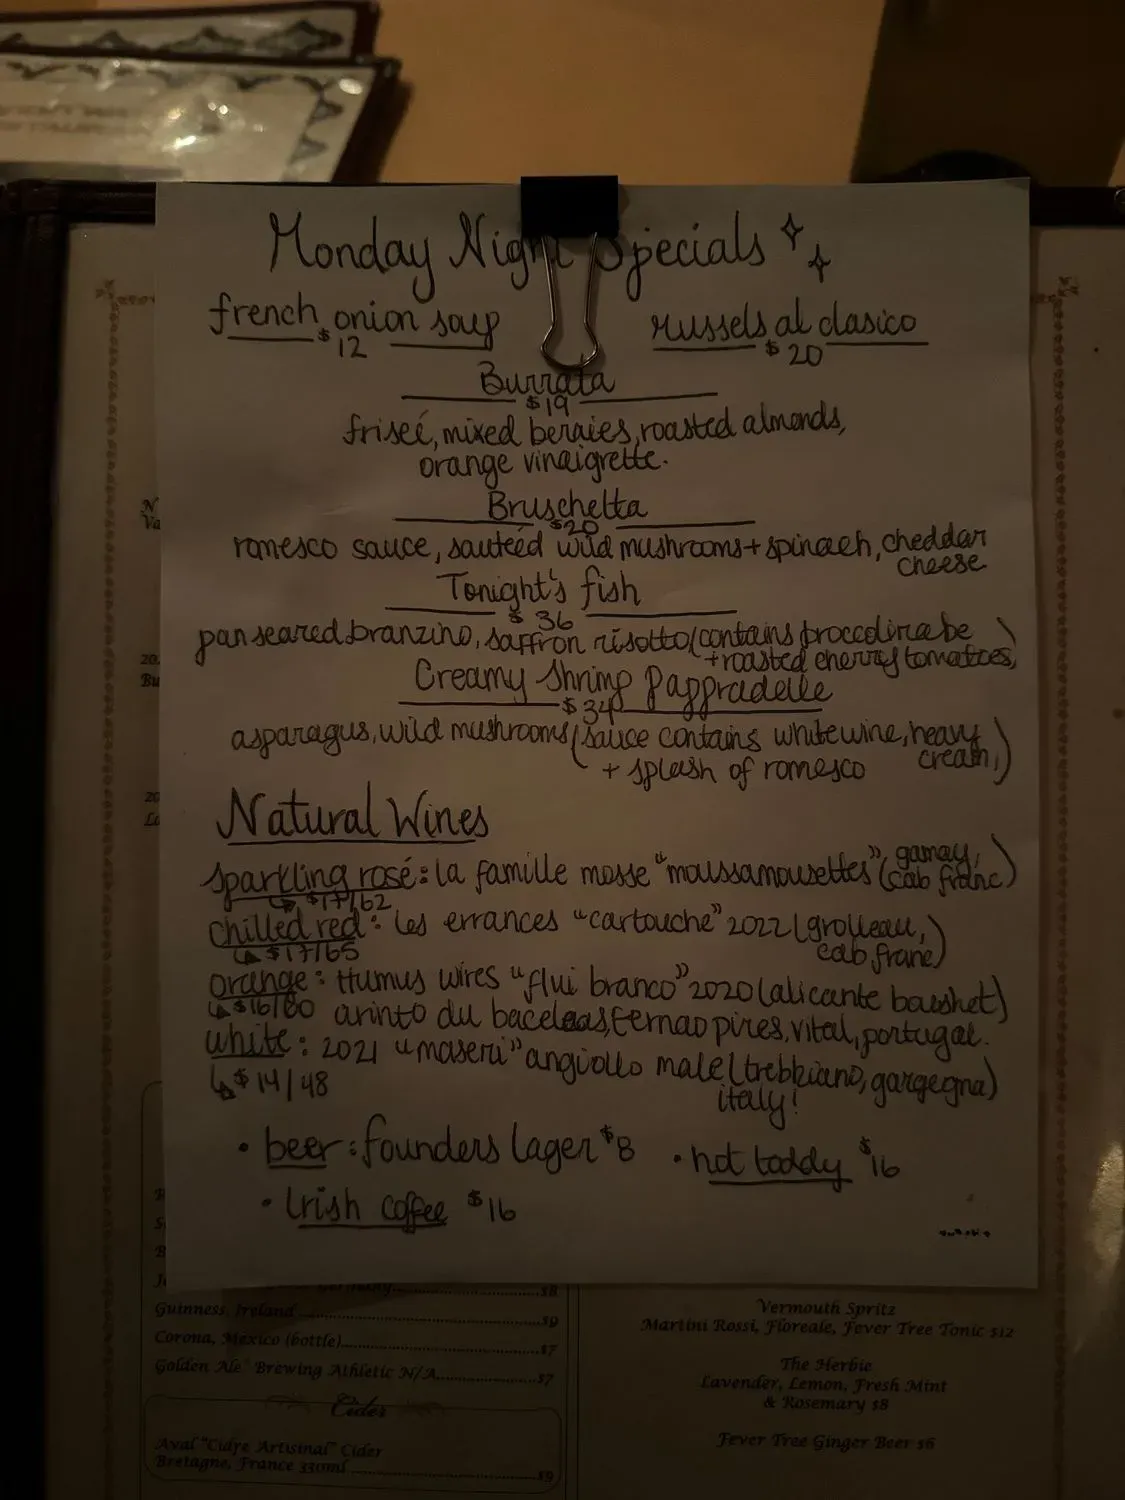 Monday Night Specials
french onion soup
$12
mussels al clasico
$20
Burrata
$19
friseé, mixed berries, roasted almonds,
orange vinaigrette.
Bruschetta
$20
romesco sauce, sautéed wild mushrooms + spinach, cheddar
cheese
Tonight's fish
$36
pan seared branzino, saffron risotto (contains broccolini abe
+ roasted cherry tomatoes)
Creamy Shrimp Pappradelle
$34
asparagus, wild mushrooms (sauce contains white wine, heavy
cream,
+ splash of romesco)
Natural Wines
sparkling rosé: la famille mosse "moussamousettes" (gamay,
cab franc)
↳ $17/62
chilled red: les errances "cartouche" 2022 (grolleau,
cab franc)
↳ $17/65
orange: Humus wires "flui branco" 2020 (alicante boushet)
↳ $16/60 arinto du bacelaas, fernao pires, vital, portugal.
white: 2021 "maseri" angiollo male (trebbiano, gargegna)
↳ $14/48
italy!
• beer: founders lager $8
• hot toddy $16
• Irish coffee $16
N
Va
20
Bu
20
Germany $8
Guinness, Ireland $9
Corona, Mexico (bottle) $7
Golden Ale Brewing Athletic N/A $7
Cider
Aval "Cidre Artisinal" Cider
Bretagne, France 330ml $9
Vermouth Spritz
Martini Rossi, Floreale, Fever Tree Tonic $12
The Herbie
Lavender, Lemon, Fresh Mint
& Rosemary $8
Fever Tree Ginger Beer $6